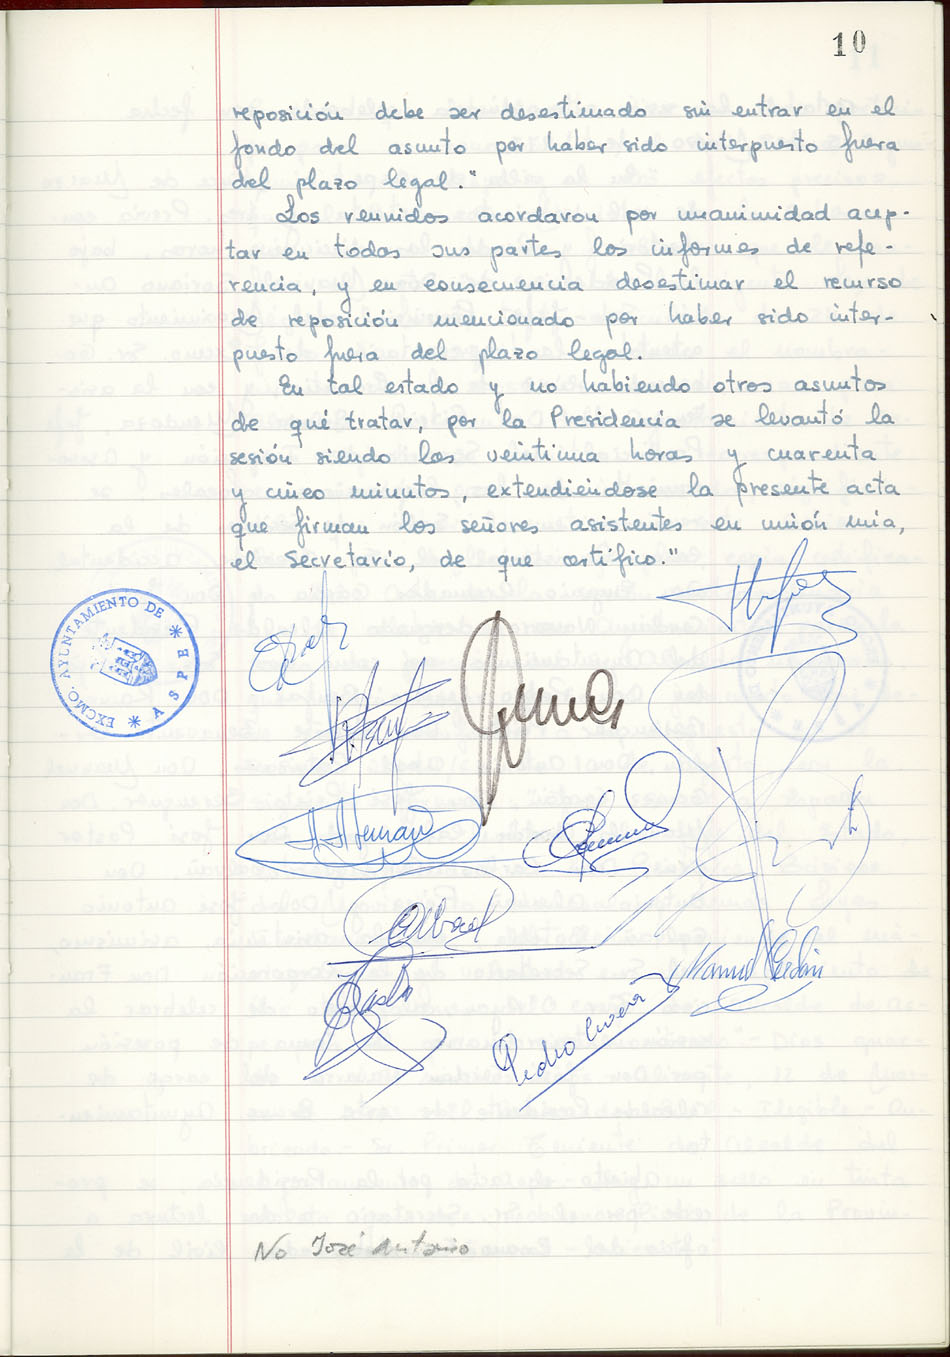 10
reposición debe ser desestimado sin entrar en el
fondo del asunto por haber sido interpuesto fuera
del plazo legal."
Los reunidos acordaron por unanimidad acep-
tar en todas sus partes los informes de refe-
rencia, y en consecuencia desestimar el recurso
de reposición mencionado por haber sido inter-
puesto fuera del plazo legal.
En tal estado y no habiendo otros asuntos
de qué tratar, por la Presidencia se levantó la
sesión siendo las veintiuna horas y cuarenta
y cinco minutos, extendiéndose la presente acta
que firman los señores asistentes en unión mía,
el Secretario, de que certifico."
EXCMO. AYUNTAMIENTO DE * ASPE *
Manuel Cerdán
No José Antonio